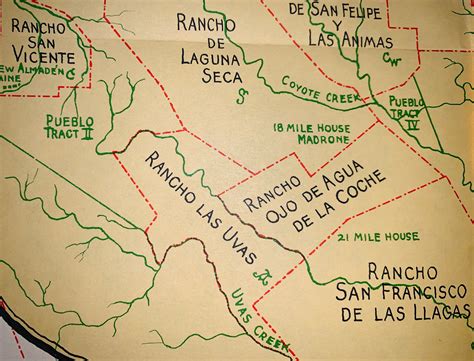 DE SAN FELIPE
Y
LAS ANIMAS
RANCHO
SAN
VICENTE
NEW ALMADEN
RANCHO
DE
LAGUNA
SECA
COYOTE CREEK
PUEBLO
TRACT II
PUEBLO
TRACT IV
18 MILE HOUSE
MADRONE
RANCHO LAS UVAS
RANCHO
OJO DE AGUA
DE LA COCHE
21 MILE HOUSE
RANCHO
SAN FRANCISCO
DE LAS LLAGAS
UVAS CREEK